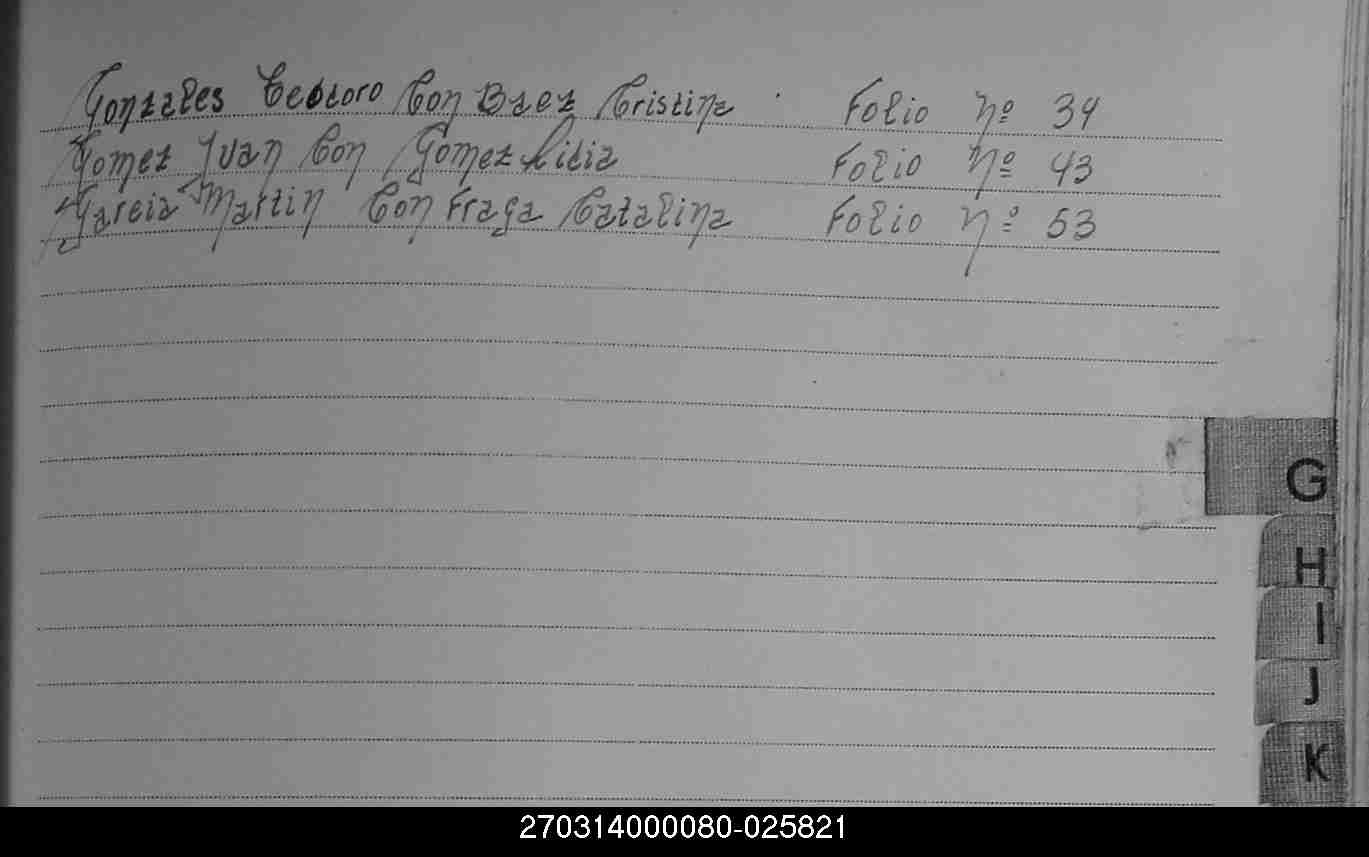 Gonzales Teodoro Con Baez Cristina Folio nº 34
Gomez Juan Con Gomez Lidia Folio nº 43
Garcia Martin Con Fraga Catalina Folio nº 53
G
H
I
J
K
270314000080-025821